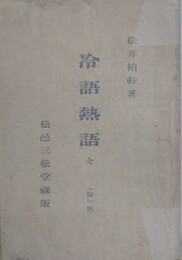 松井柏軒著
冷語熱語 全
(第一版)
松邑三松堂藏版